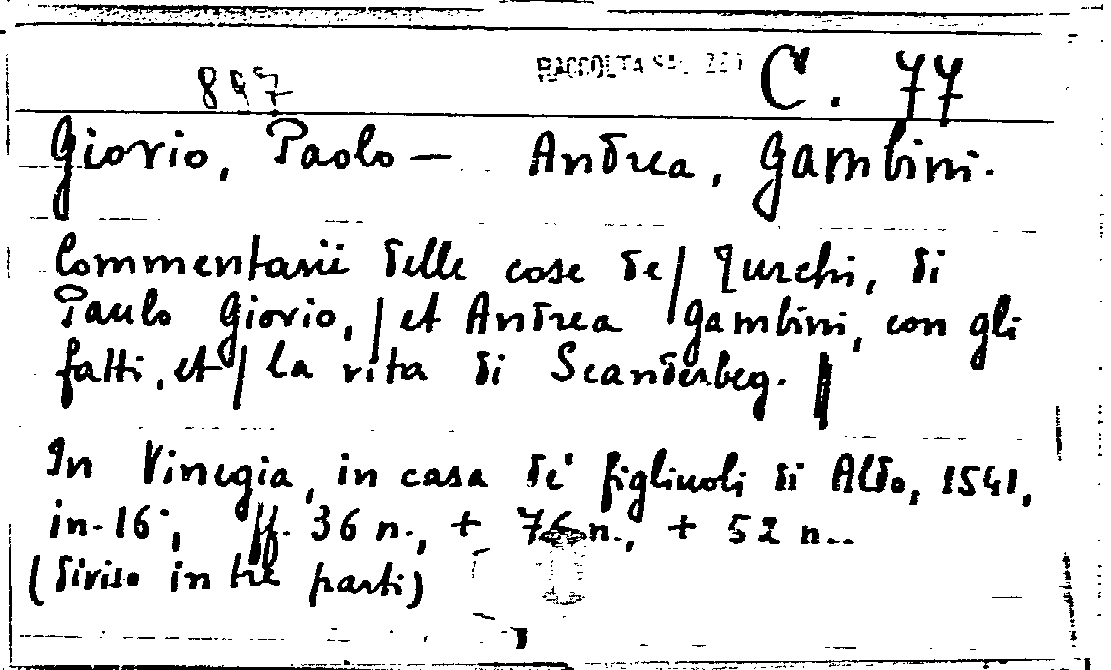 897 RACCOLTA C. 77
Giovio, Paolo — Andrea, Gambini.
Commentarii delle cose de/ Turchi, di
Paulo Giovio, / et Andrea / Gambini, con gli
fatti, et / la vita di Scanderbeg. ‖
In Vinegia, in casa de' figliuoli di Aldo, 1541,
in-16°, ff. 36 n., + 76 n., + 52 n..
(diviso in tre parti)